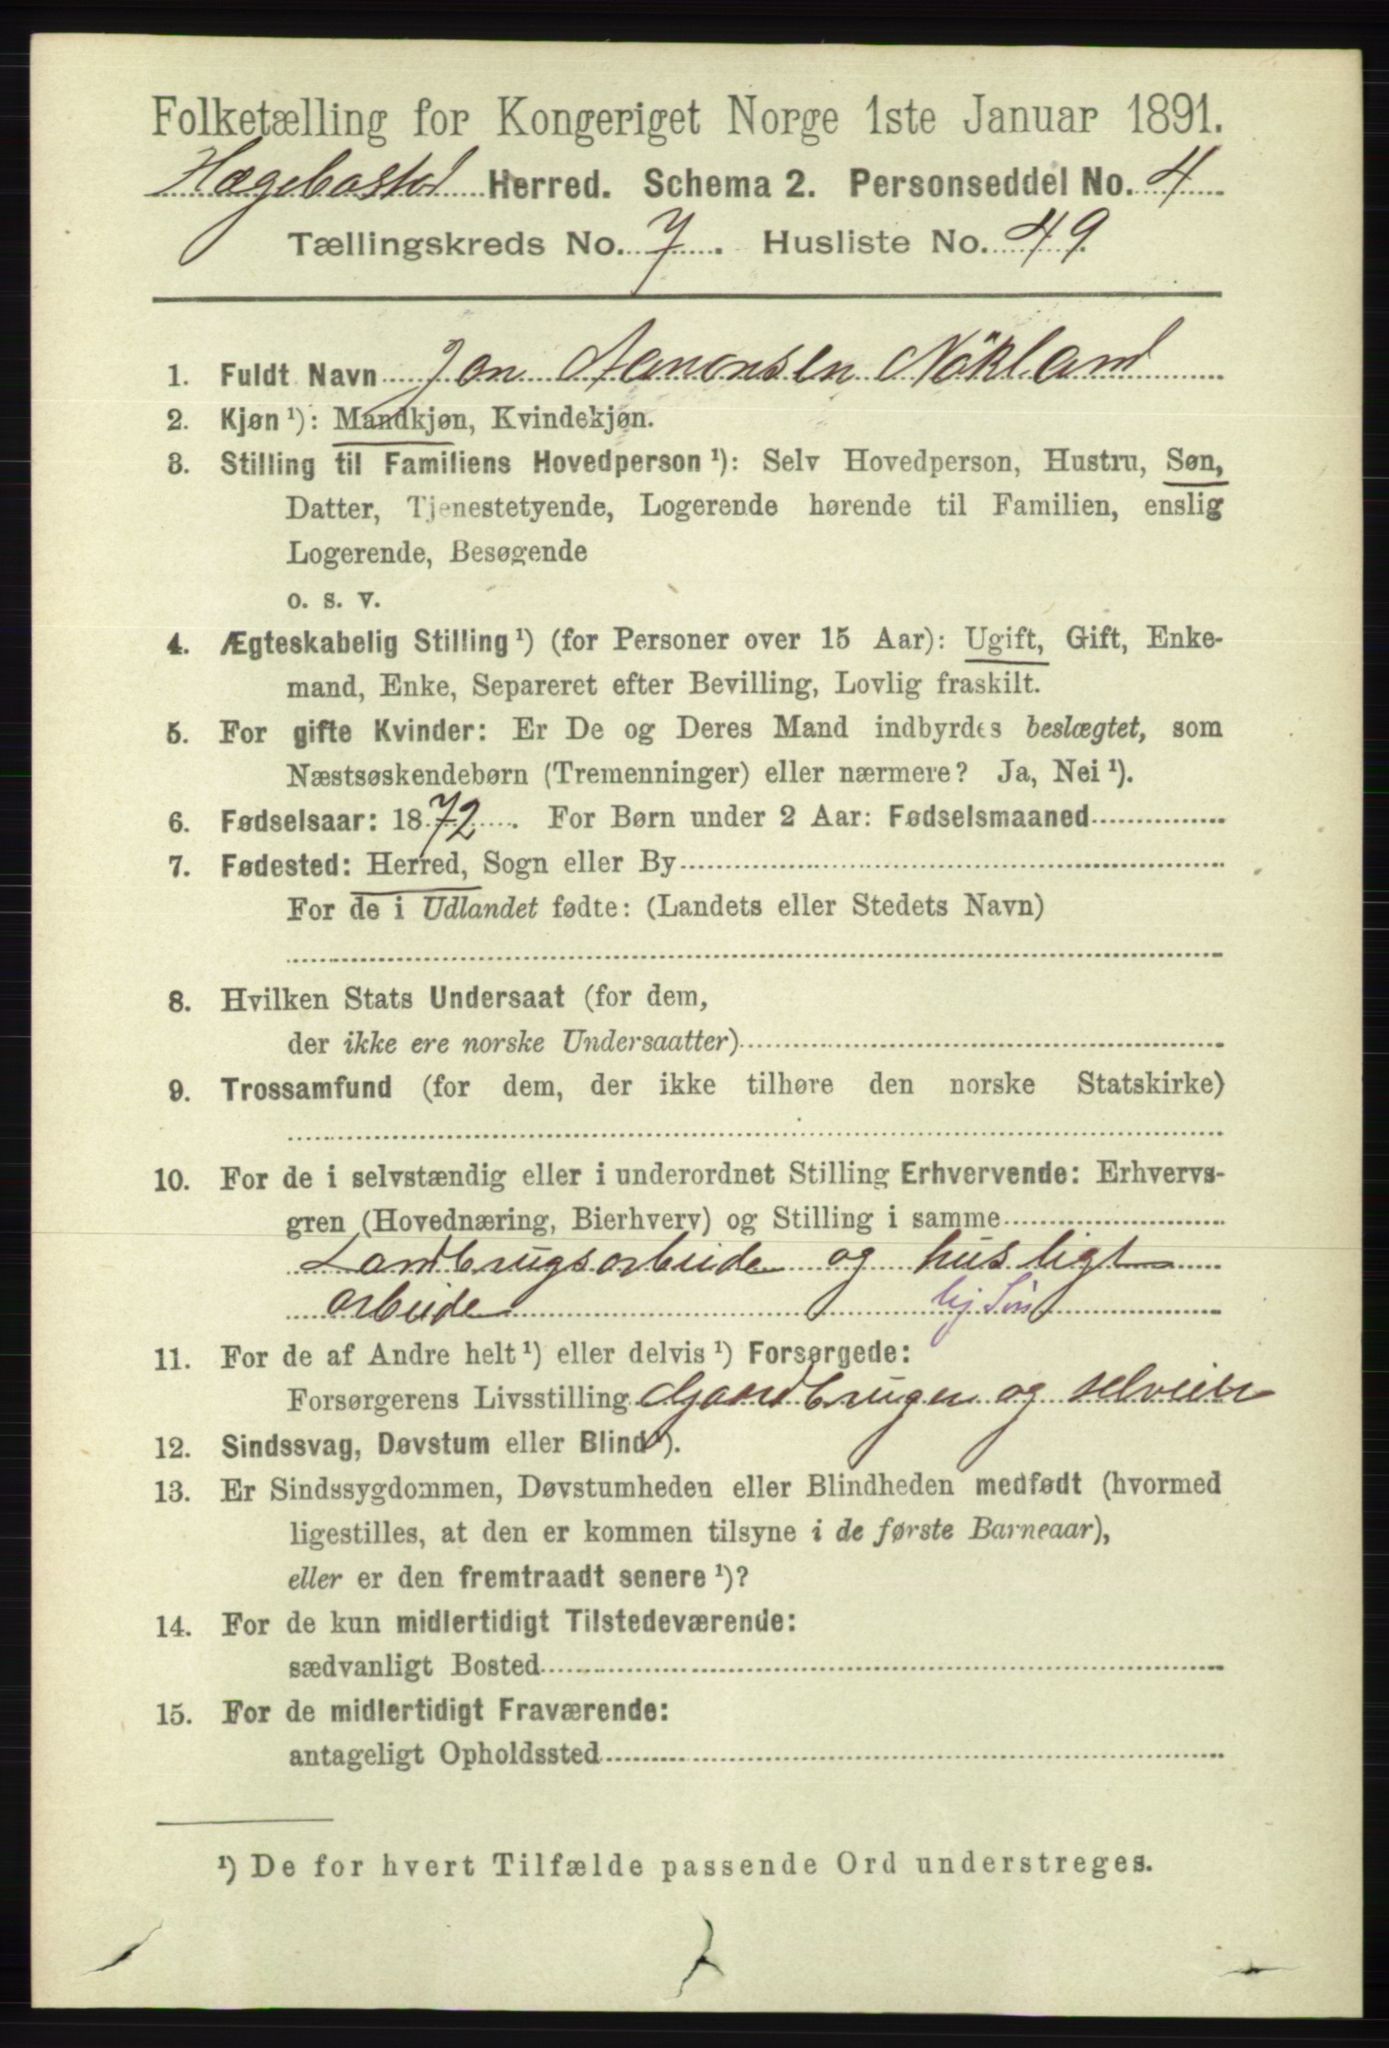 Folketælling for Kongeriget Norge 1ste Januar 1891.
Hægebostad Herred. Schema 2. Personseddel No. 4
Tællingskreds No. 7. Husliste No. 49.
1. Fuldt Navn Jon Aanonsen Nökland
2. Kjøn ¹): Mandkjøn, Kvindekjøn.
3. Stilling til Familiens Hovedperson ¹): Selv Hovedperson, Hustru, Søn,
Datter, Tjenestetyende, Logerende hørende til Familien, enslig
Logerende, Besøgende
o. s. v.
4. Ægteskabelig Stilling ¹) (for Personer over 15 Aar): Ugift, Gift, Enke-
mand, Enke, Separeret efter Bevilling, Lovlig fraskilt.
5. For gifte Kvinder: Er De og Deres Mand indbyrdes beslægtet, som
Næstsøskendebørn (Tremenninger) eller nærmere? Ja, Nei ¹).
6. Fødselsaar: 1872. For Børn under 2 Aar: Fødselsmaaned
7. Fødested: Herred, Sogn eller By
For de i Udlandet fødte: (Landets eller Stedets Navn)
8. Hvilken Stats Undersaat (for dem,
der ikke ere norske Undersaatter)
9. Trossamfund (for dem, der ikke tilhøre den norske Statskirke)
10. For de i selvstændig eller i underordnet Stilling Erhvervende: Erhvervs-
gren (Hovednæring, Bierhverv) og Stilling i samme
Landbrugsarbeide og husligt
arbeide
11. For de af Andre helt ¹) eller delvis ¹) Forsørgede:
Forsørgerens Livsstilling Gaardbruger og selveier
12. Sindssvag, Døvstum eller Blind ¹).
13. Er Sindssygdommen, Døvstumheden eller Blindheden medfødt (hvormed
ligestilles, at den er kommen tilsyne i de første Barneaar),
eller er den fremtraadt senere ¹)?
14. For de kun midlertidigt Tilstedeværende:
sædvanligt Bosted
15. For de midlertidigt Fraværende:
antageligt Opholdssted
¹) De for hvert Tilfælde passende Ord understreges.